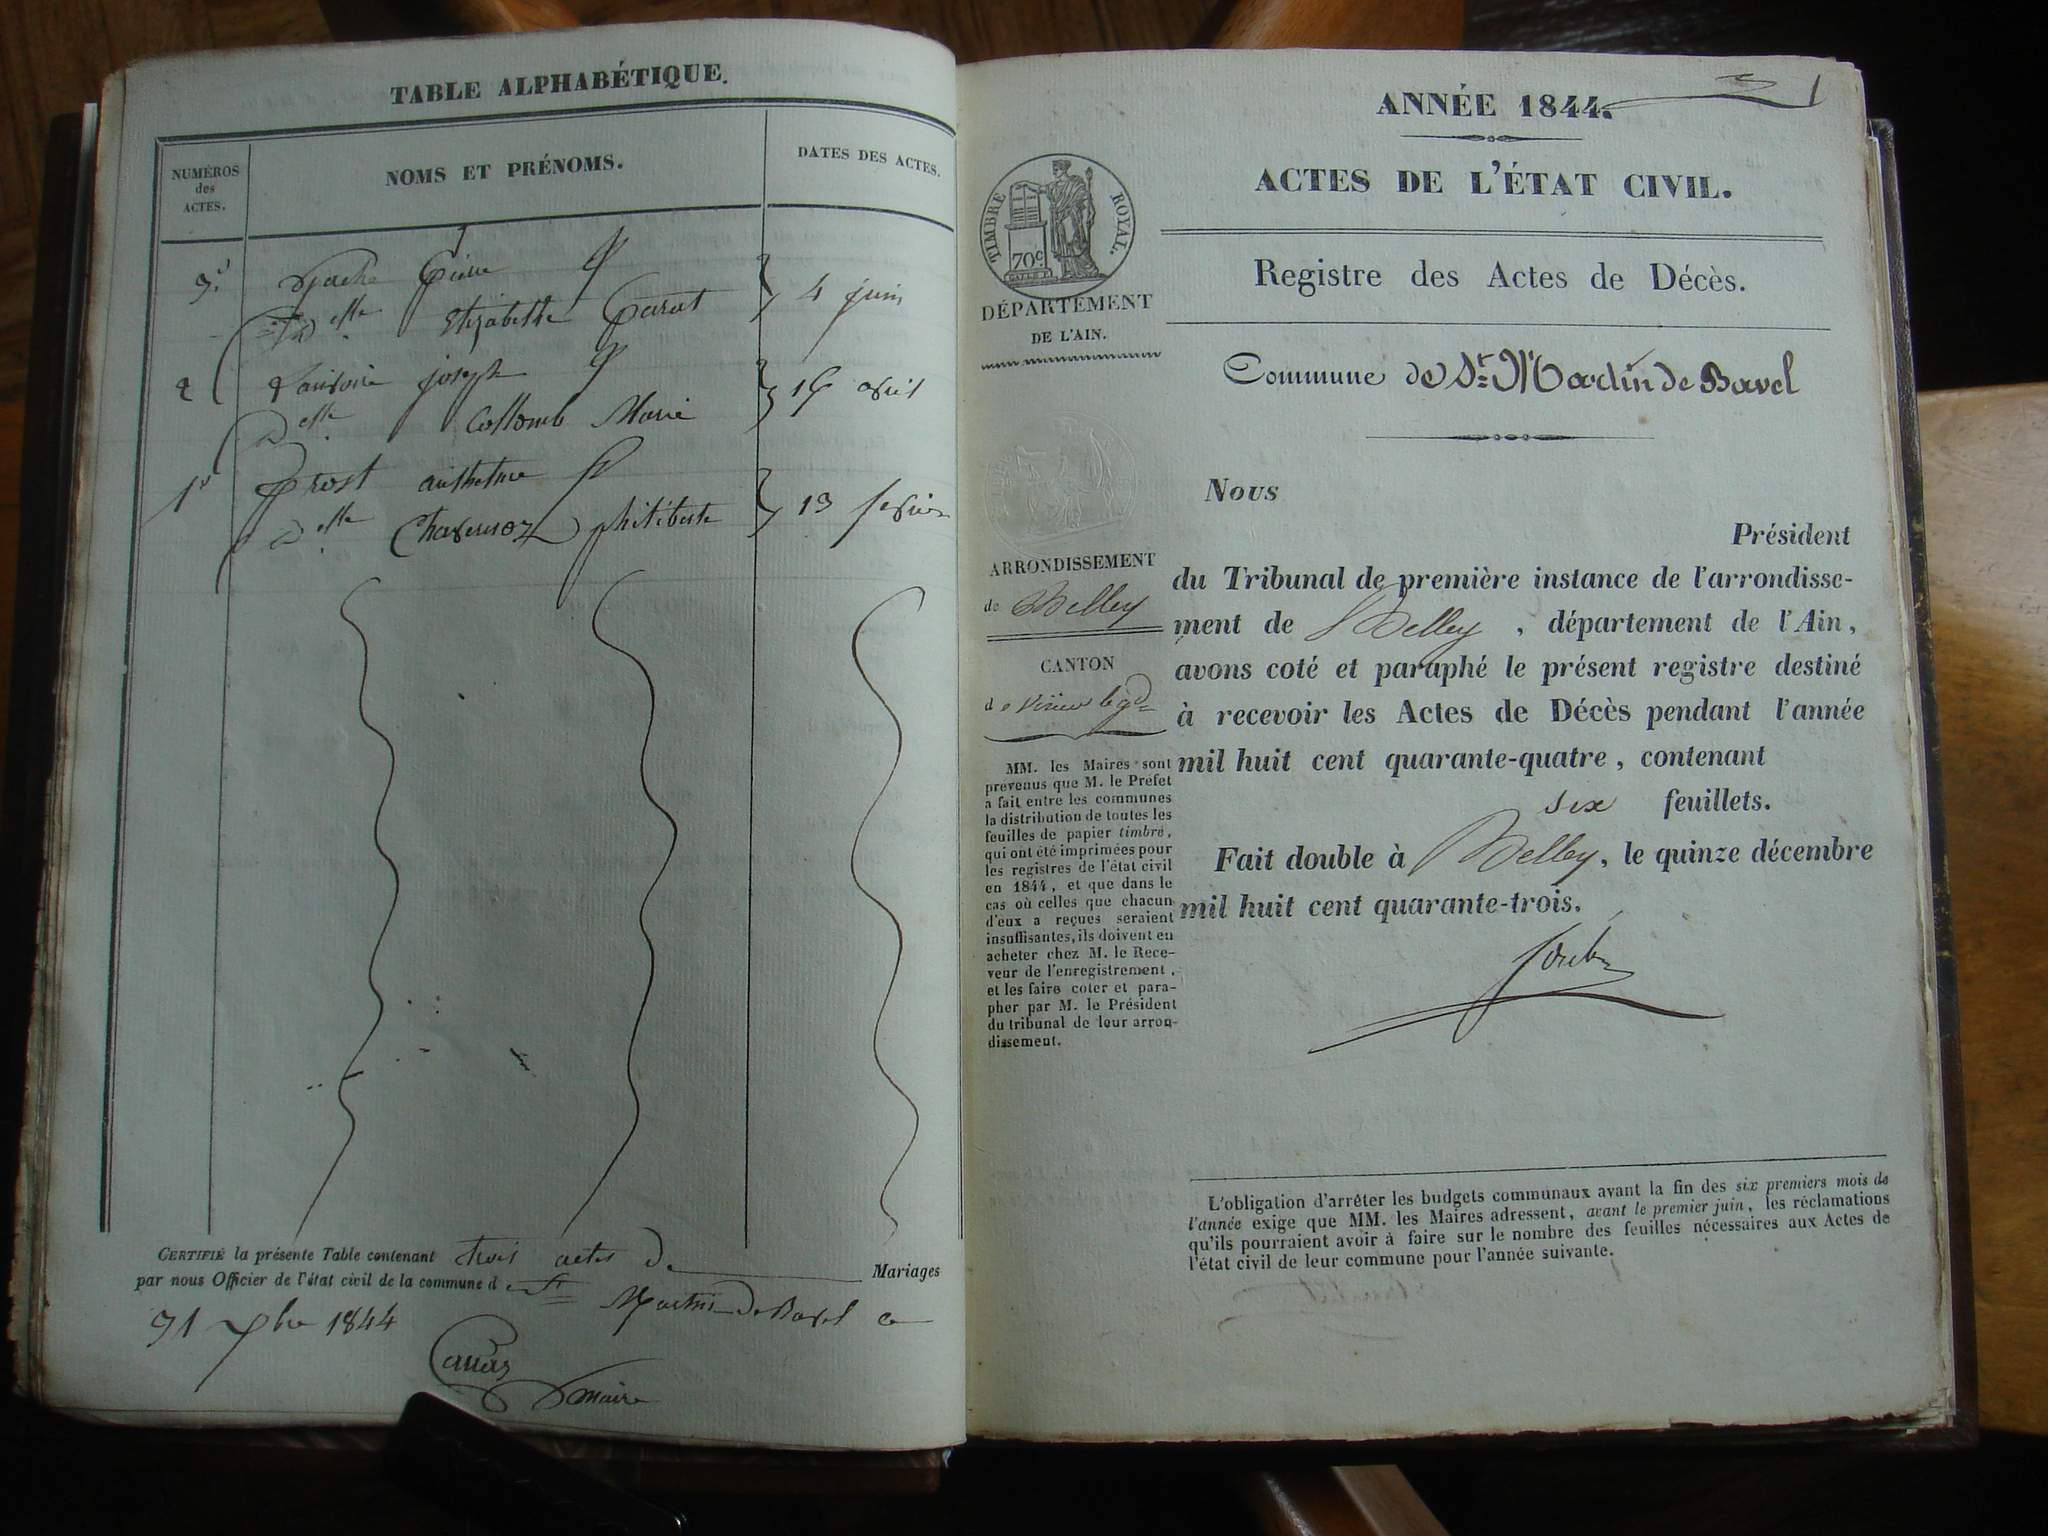 TABLE ALPHABÉTIQUE.
NUMÉROS
des
ACTES.
NOMS ET PRÉNOMS.
DATES DES ACTES.
3.
4 juin
Elizabette
2
joseph
avril
Collomb Marie
1
Prost anthelme
13 fevrier
philiberte
CERTIFIÉ la présente Table contenant trois actes d. Mariages
par nous Officier de l'état civil de la commune de St
Martin de Bavel ce
31 Xbre 1844
maire
1
ANNÉE 1844.
ACTES DE L'ÉTAT CIVIL.
TIMBRE ROYAL.
70c.
DÉPARTEMENT
DE L'AIN.
Registre des Actes de Décès.
Commune de St. Martin de Bavel
Nous
Président
du Tribunal de première instance de l'arrondisse-
ment de Belley, département de l'Ain,
avons coté et paraphé le présent registre destiné
à recevoir les Actes de Décès pendant l'année
mil huit cent quarante-quatre, contenant
six feuillets.
Fait double à Belley, le quinze décembre
mil huit cent quarante-trois.
ARRONDISSEMENT
de Belley
CANTON
de Virieu le gd
MM. les Maires sont
prévenus que M. le Préfet
a fait entre les communes
la distribution de toutes les
feuilles de papier timbré,
qui ont été imprimées pour
les registres de l'état civil
en 1844, et que dans le
cas où celles que chacun
d'eux a reçues seraient
insuffisantes, ils doivent en
acheter chez M. le Rece-
veur de l'enregistrement,
et les faire coter et para-
pher par M. le Président
du tribunal de leur arron-
dissement.
L'obligation d'arrêter les budgets communaux avant la fin des six premiers mois de
l'année exige que MM. les Maires adressent, avant le premier juin, les réclamations
qu'ils pourraient avoir à faire sur le nombre des feuilles nécessaires aux Actes de
l'état civil de leur commune pour l'année suivante.